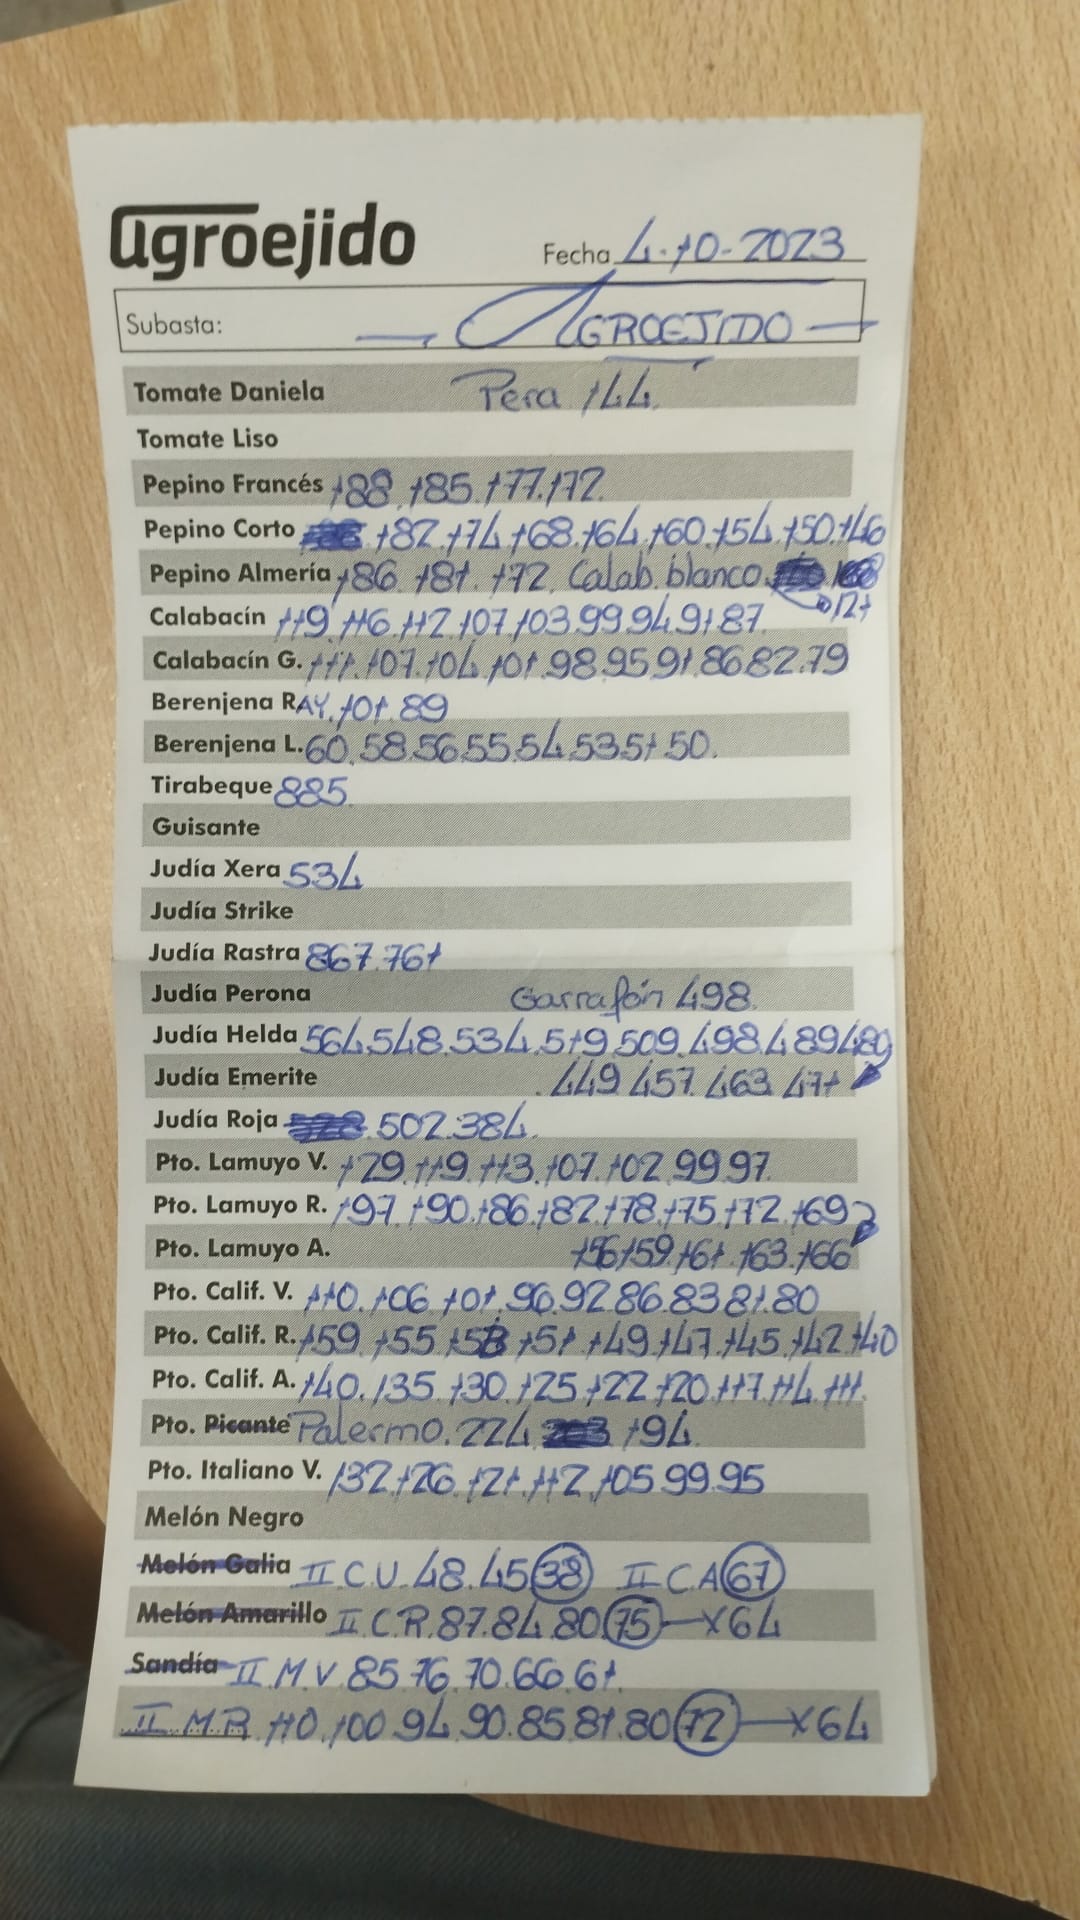 agroejido
Fecha 4-10-2023
Subasta: AGROEJIDO
Tomate Daniela Pera 144
Tomate Liso
Pepino Francés 188.185.177.172.
Pepino Corto 182.174.168.164.160.154.150.146
Pepino Almería 186.181.172. Calab. blanco
121
Calabacín 119.116.112.107.103.99.94.91.87
Calabacín G. 111.107.104.101.98.95.91.86.82.79
Berenjena RAY. 101.89
Berenjena L. 60.58.56.55.54.53.51.50.
Tirabeque 885
Guisante
Judía Xera 534
Judía Strike
Judía Rastra 867.761
Judía Perona Garrafón 498.
Judía Helda 564.548.534.519.509.498.489.480
Judía Emerite 449.457.463.471
Judía Roja 502.384.
Pto. Lamuyo V. 129.119.113.107.102.99.97.
Pto. Lamuyo R. 197.190.186.182.178.175.172.169
Pto. Lamuyo A. 156.159.161.163.166
Pto. Calif. V. 110.106.101.96.92.86.83.81.80
Pto. Calif. R. 159.155.153.151.149.147.145.142.140
Pto. Calif. A. 140.135.130.125.122.120.117.114.111.
Pto. Picante Palermo. 224 194
Pto. Italiano V. 132.126.121.112.105.99.95
Melón Negro
Melón Galia II C.U. 48.45 38 II C A 67
Melón Amarillo II.C.R. 87.84.80.75 — X64
Sandía II.M.V 85.76.70.66.61.
II.M.R. 110.100.94.90.85.81.80 72 — X64